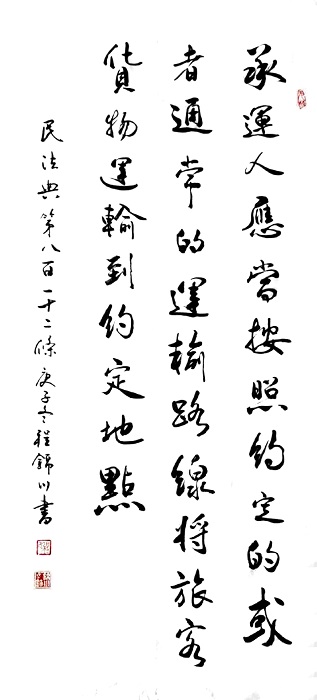 承運人應當按照約定的或
者通常的運輸路線將旅客
貨物運輸到約定地點
民法典第八百一十二條 庚子冬 程錦川書